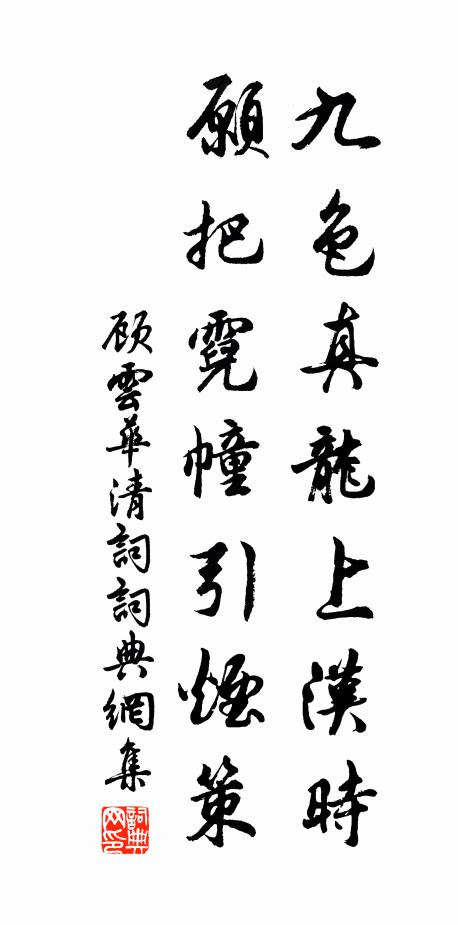 九色真龍上漢時
願把霓幢引煙策
顾雲華清詞詞典網集
詞典网印